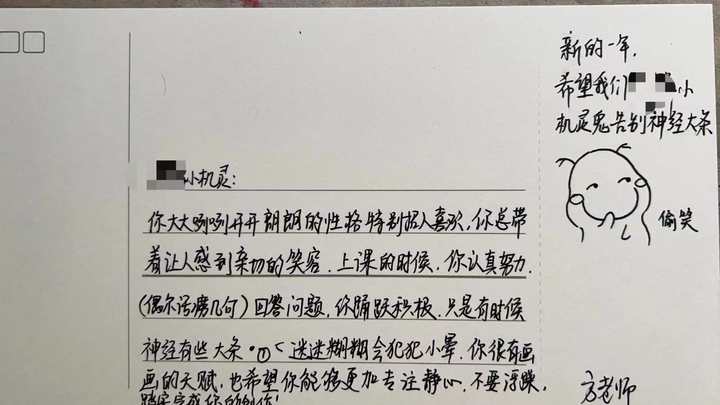 新的一年,
希望我们小
机灵鬼告别神经大条
偷笑
小机灵:
你大大咧咧开开朗朗的性格特别招人喜欢,你总带
着让人感到亲切的笑容.上课的时候,你认真努力.
(偶尔话痨几句)回答问题,你踊跃积极.只是有时候
神经有些大条·迷迷糊糊会犯犯小晕.你很有画
画的天赋,也希望你能够更加专注静心.不要浮躁,
踏实完成你的创作!
方老师